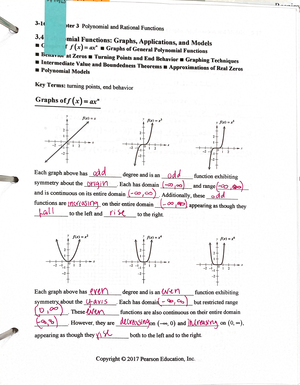 3-1 ter 3 Polynomial and Rational Functions
3.4 omial Functions: Graphs, Applications, and Models
■ G f f(x) = axⁿ ■ Graphs of General Polynomial Functions
■ Behavior at Zeros ■ Turning Points and End Behavior ■ Graphing Techniques
■ Intermediate Value and Boundedness Theorems ■ Approximations of Real Zeros
■ Polynomial Models
Key Terms: turning points, end behavior
Graphs of f(x) = axⁿ
f(x) = x f(x) = x³ f(x) = x⁵
Each graph above has odd degree and is an odd function exhibiting
symmetry about the origin. Each has domain (-∞,∞) and range (-∞,∞)
and is continuous on its entire domain (-∞,∞). Additionally, these odd
functions are increasing on their entire domain (-∞,∞) appearing as though they
fall to the left and rise to the right.
f(x) = x² f(x) = x⁴ f(x) = x⁶
Each graph above has even degree and is an even function exhibiting
symmetry about the y-axis. Each has domain (-∞,∞), but restricted range
(0,∞). These even functions are also continuous on their entire domain
However, they are decreasing on (-∞, 0) and increasing on (0, ∞),
appearing as though they rise both to the left and to the right.
Copyright © 2017 Pearson Education, Inc.